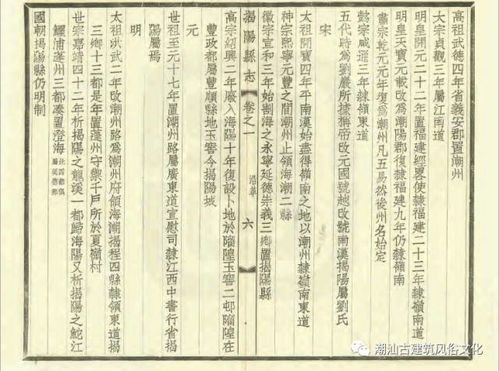 高祖武德四年省義安郡置潮州
太宗貞觀三年屬江南道
明皇開元二十二年置福建經畧使隸福建二十三年隸嶺南道
明皇天寶元載改爲潮陽郡復隸福建九年仍隸嶺南
肅宗乾元元年復爲潮州凡五易然後州名始定
懿宗咸通三年隸嶺東道
五代時爲劉巖所據稱帝改元國號越改號南漢揭陽屬劉氏
宋
太祖開寶四年平南漢始盡得嶺南之地以潮州隸嶺南東道
神宗熙寧元豐之間潮州止領海潮二縣
徽宗宣和三年始割海之永寧延德崇義三鄉置揭陽縣
揭陽縣志 卷之一 沿革 六
高宗紹興二年廢入海陽十年復設卜地於隝隍玉窖二邨隝隍在
豐政都屬豐順縣地玉窖今揭陽城
元
世祖至元十七年置潮州路屬廣東道宣慰司隸江西中書行省揭
陽屬焉
明
太祖洪武二年改潮州路爲潮州府領海潮揭程四縣隸嶺東道揭
三鄉十三都是年置蓬州守禦千戶所於夏嶺村
世宗嘉靖四十二年析揭陽之龍溪一都歸海陽又析揭陽之鮀江
鱷浦蓬州三都湊置澄海
國朝揭陽縣仍明制
潮汕古建筑风俗文化